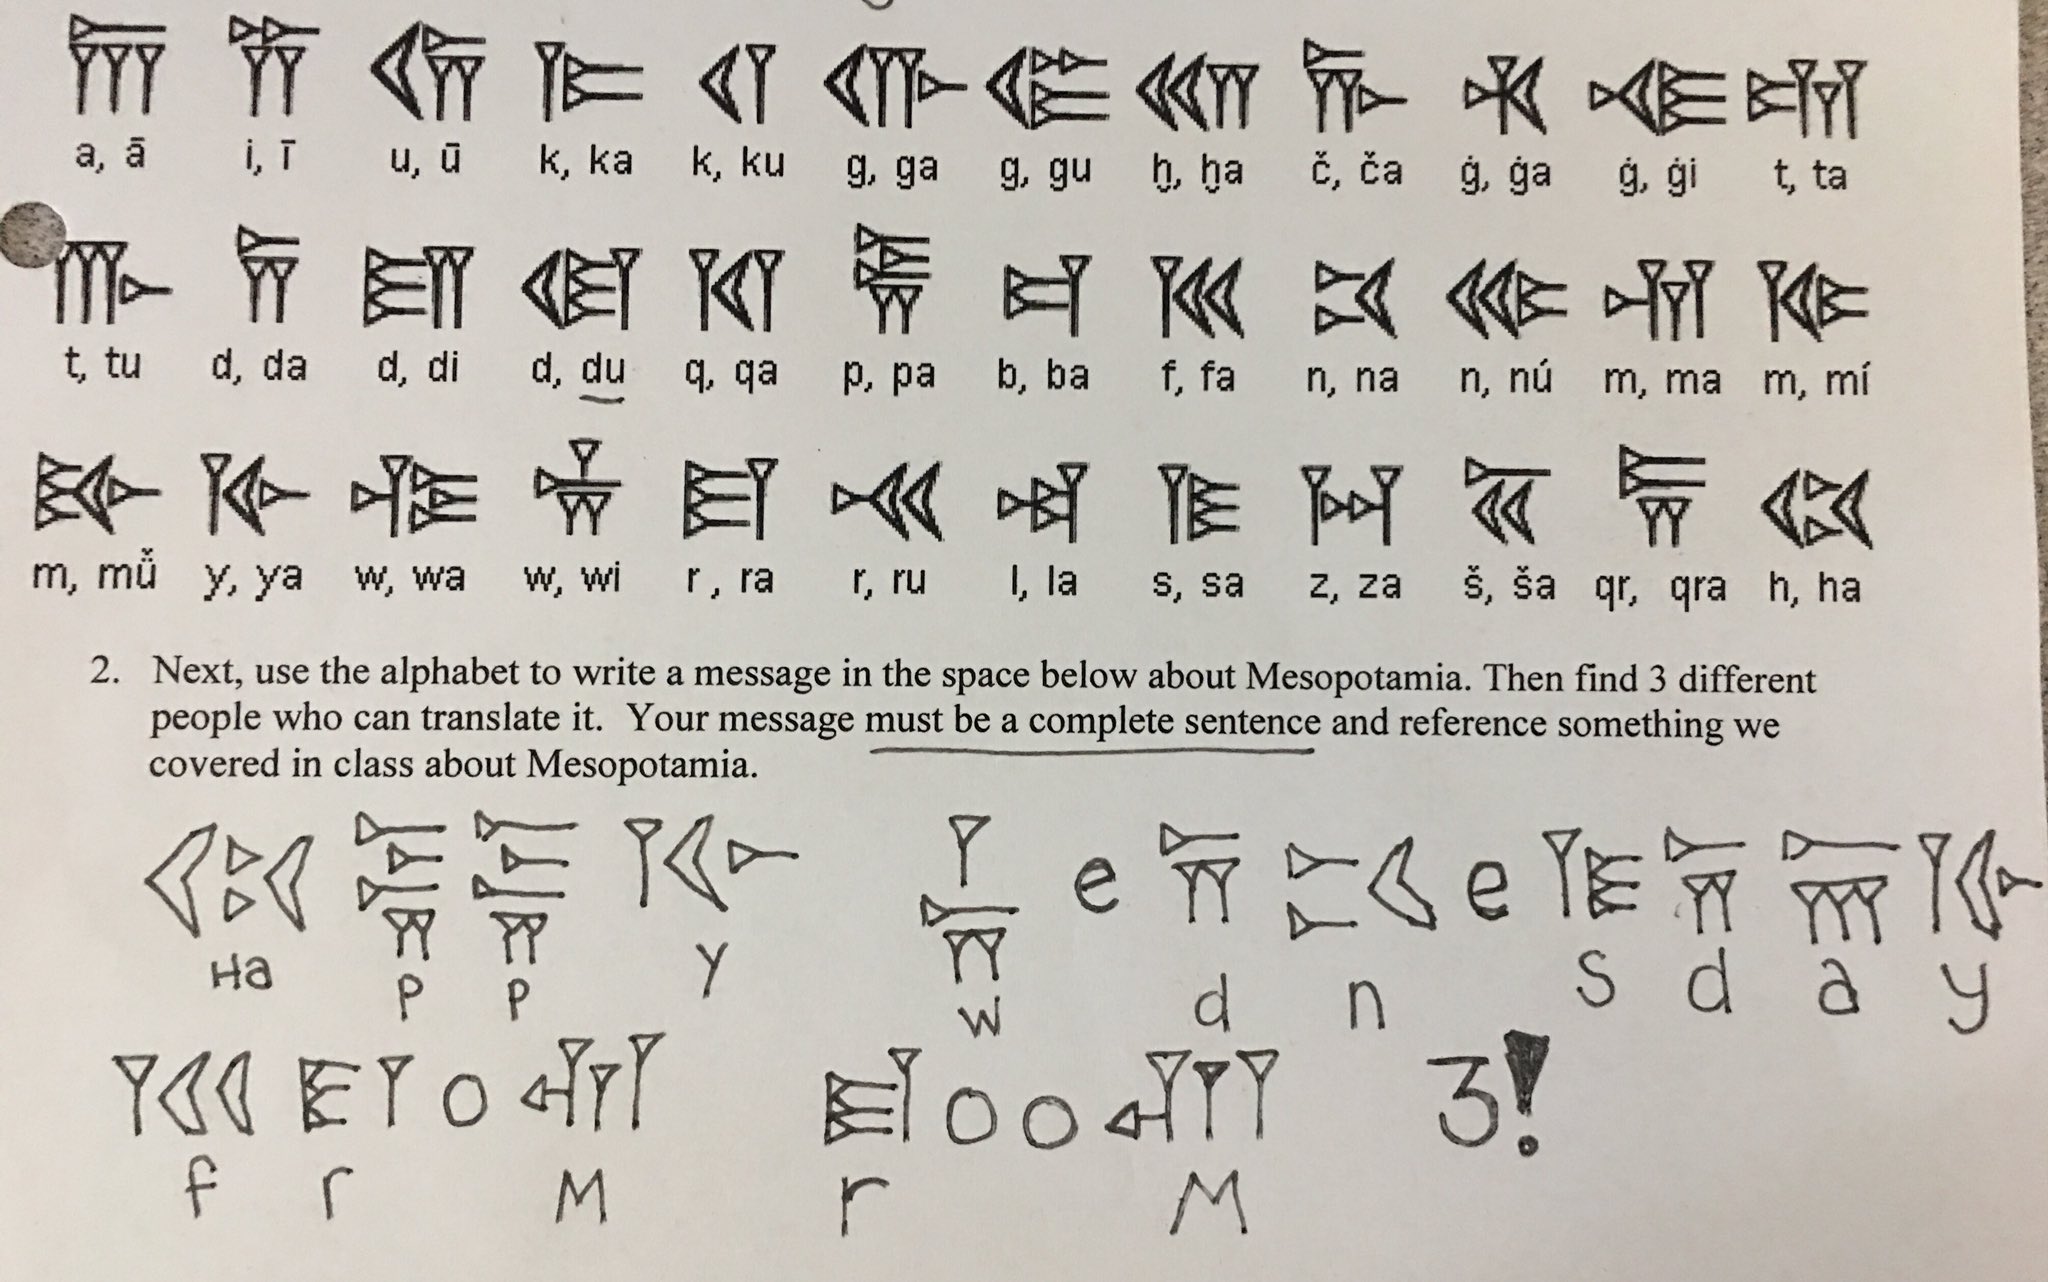 𐎠 𐎡 𐎢 𐎣 𐎤 𐎥 𐎦 𐎧 𐎨 𐎩 𐎪 𐎫
a, ā i, ī u, ū k, ka k, ku g, ga g, gu ḫ, ḫa č, ča ġ, ġa ġ, ġi t, ta
𐎬 𐎭 𐎮 𐎯 𐎰 𐎱 𐎲 𐎳 𐎴 𐎵 𐎶 𐎷
t, tu d, da d, di d, du q, qa p, pa b, ba f, fa n, na n, nú m, ma m, mí
𐎸 𐎹 𐎺 𐎻 𐎼 𐎽 𐎾 𐎿 𐏀 𐏁 𐏂 𐏃
m, mṻ y, ya w, wa w, wi r , ra r, ru l, la s, sa z, za š, ša qr, qra h, ha
2. Next, use the alphabet to write a message in the space below about Mesopotamia. Then find 3 different
people who can translate it. Your message must be a complete sentence and reference something we
covered in class about Mesopotamia.
𐏃𐎱𐎱𐎹 𐎻e𐎭𐎴e𐎿𐎭𐎠𐎹
Ha p p y w d n s d a y
𐎳𐎼o𐎶 𐎼oo𐎶 3!
f r M r M